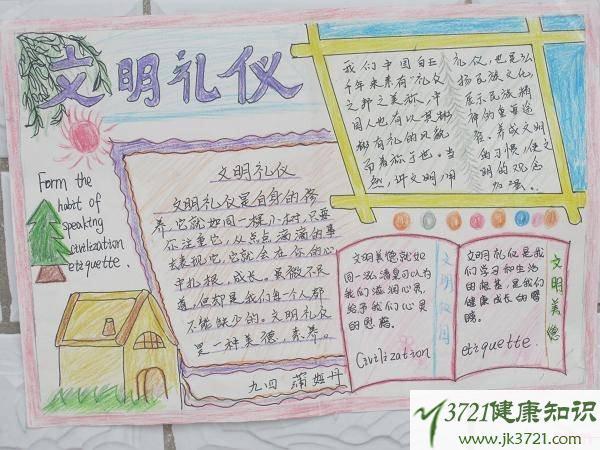 文明礼仪
Form the
habit of
speaking
civilization
etiquette.
文明礼仪
文明礼仪是自身的修
养,它就如同一棵小树,只要
你注重它,从点点滴滴的事
去表现它,它就会在你的心
中扎根,成长。虽微不足
道,但却是我们每一个人都
不能缺少的。文明礼仪
是一种美德,素养。
九.四 蒲姬丹
我们中国自五
千年来素有“礼仪
之邦”之美称,中
国人也有以其彬
彬有礼的风貌
而著称于世。当
然,讲文明,用
礼仪,也是弘
扬民族文化,
展示民族精
神的重要途
径。养成文明
的习惯,使文
明的观念
加强。
文明美德就如
同一泓清泉可以为
我们滋润心灵,
给予我们心灵
的启迪。
Civilization
文明仪日
文明礼仪是我
们学习和生活
的根基,是我们
健康成长的臂
膀。
etiquette.
文明美德
3721健康知识
www.jk3721.com